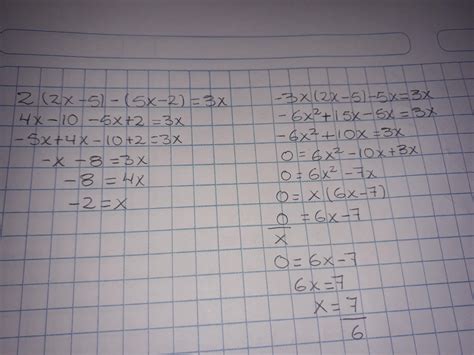 2(2x-5)-(5x-2)=3x
4x-10-5x+2=3x
-5x+4x-10+2=3x
-x-8=3x
-8=4x
-2=x
-3x(2x-5)-5x=3x
-6x²+15x-5x=3x
-6x²+10x=3x
0=6x²-10x+3x
0=6x²-7x
0=x(6x-7)
0/x=6x-7
0=6x-7
6x=7
x=7/6